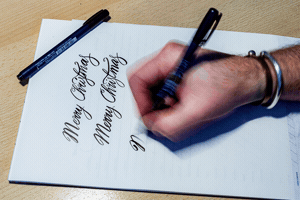 Merry Christmas
Merry Christmas
M